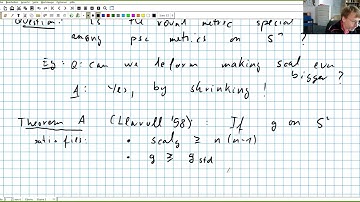 Question: Is the round metric special
among psc metrics on Sⁿ ?
Eg: Q: can we deform making scal even
bigger ?
A: Yes, by shrinking !
Theorem A (Llarull '98) : If g on Sⁿ
satisfies: • scal_g ≥ n(n-1)
• g ≥ g_std